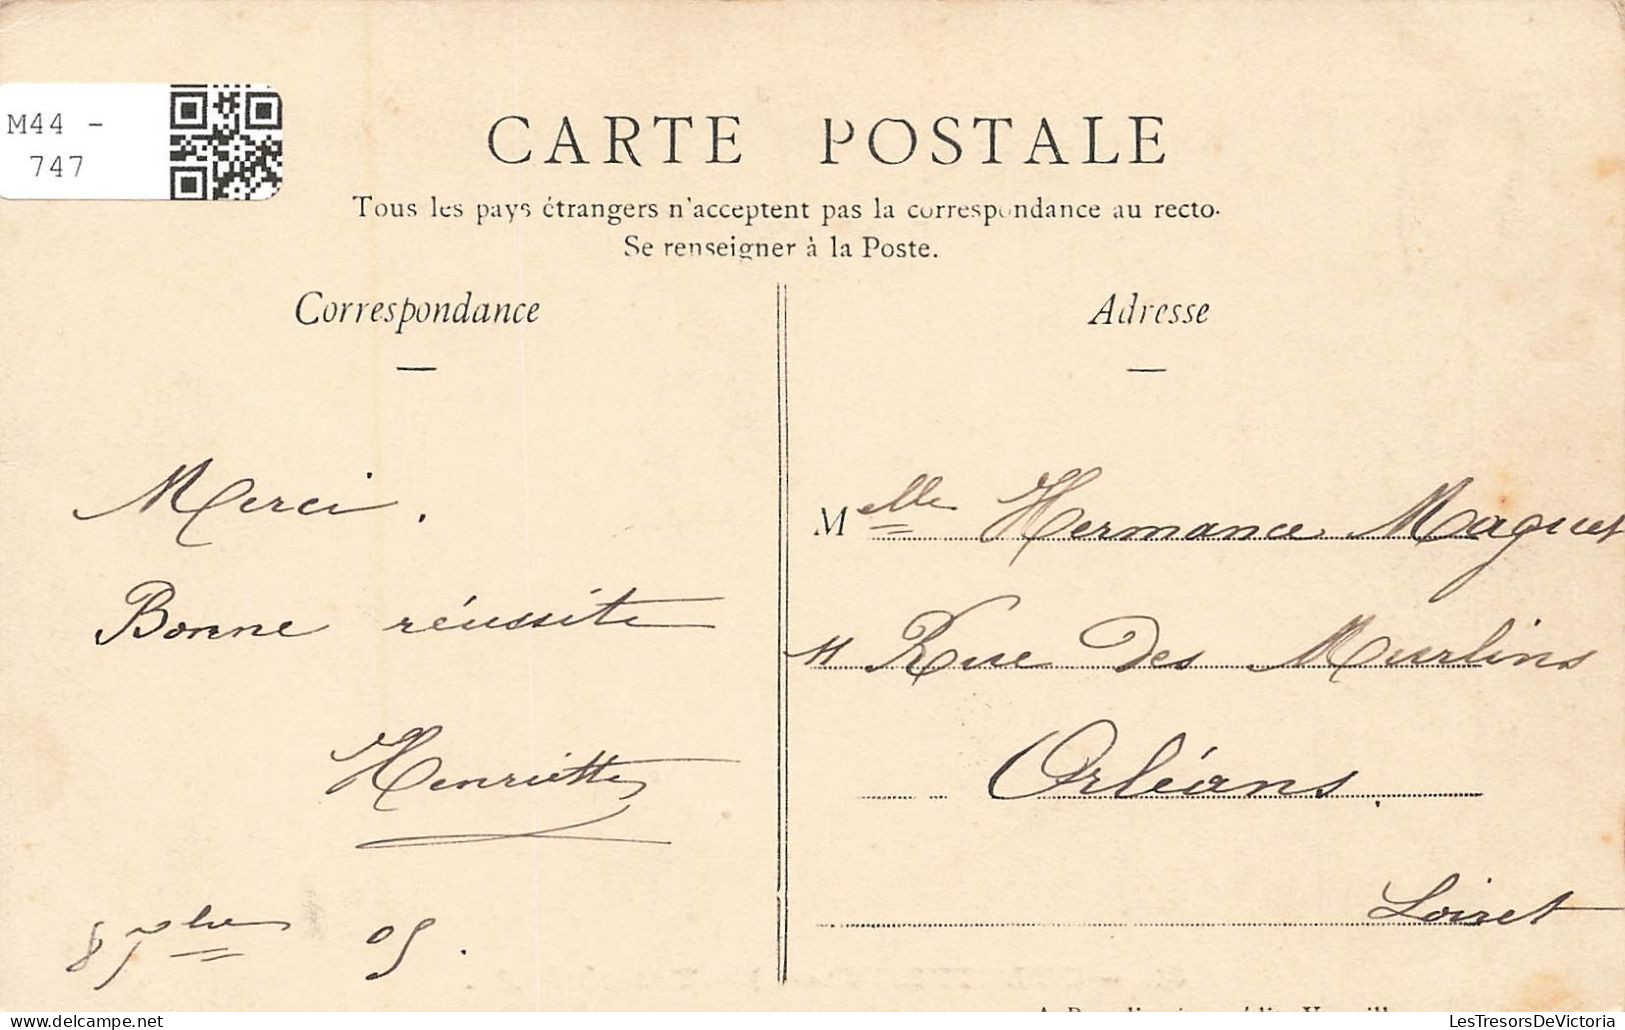 M44 -
747
CARTE POSTALE
Tous les pays étrangers n'acceptent pas la correspondance au recto.
Se renseigner à la Poste.
Correspondance
Adresse
Merci.
Bonne réussite
Henriette
05.
Melle Hermance Maguet
11 Rue des Murlins
Orléans.
Loiret
LesTresorsDeVictoria
les-tresors-de-victoria.delcampe.net